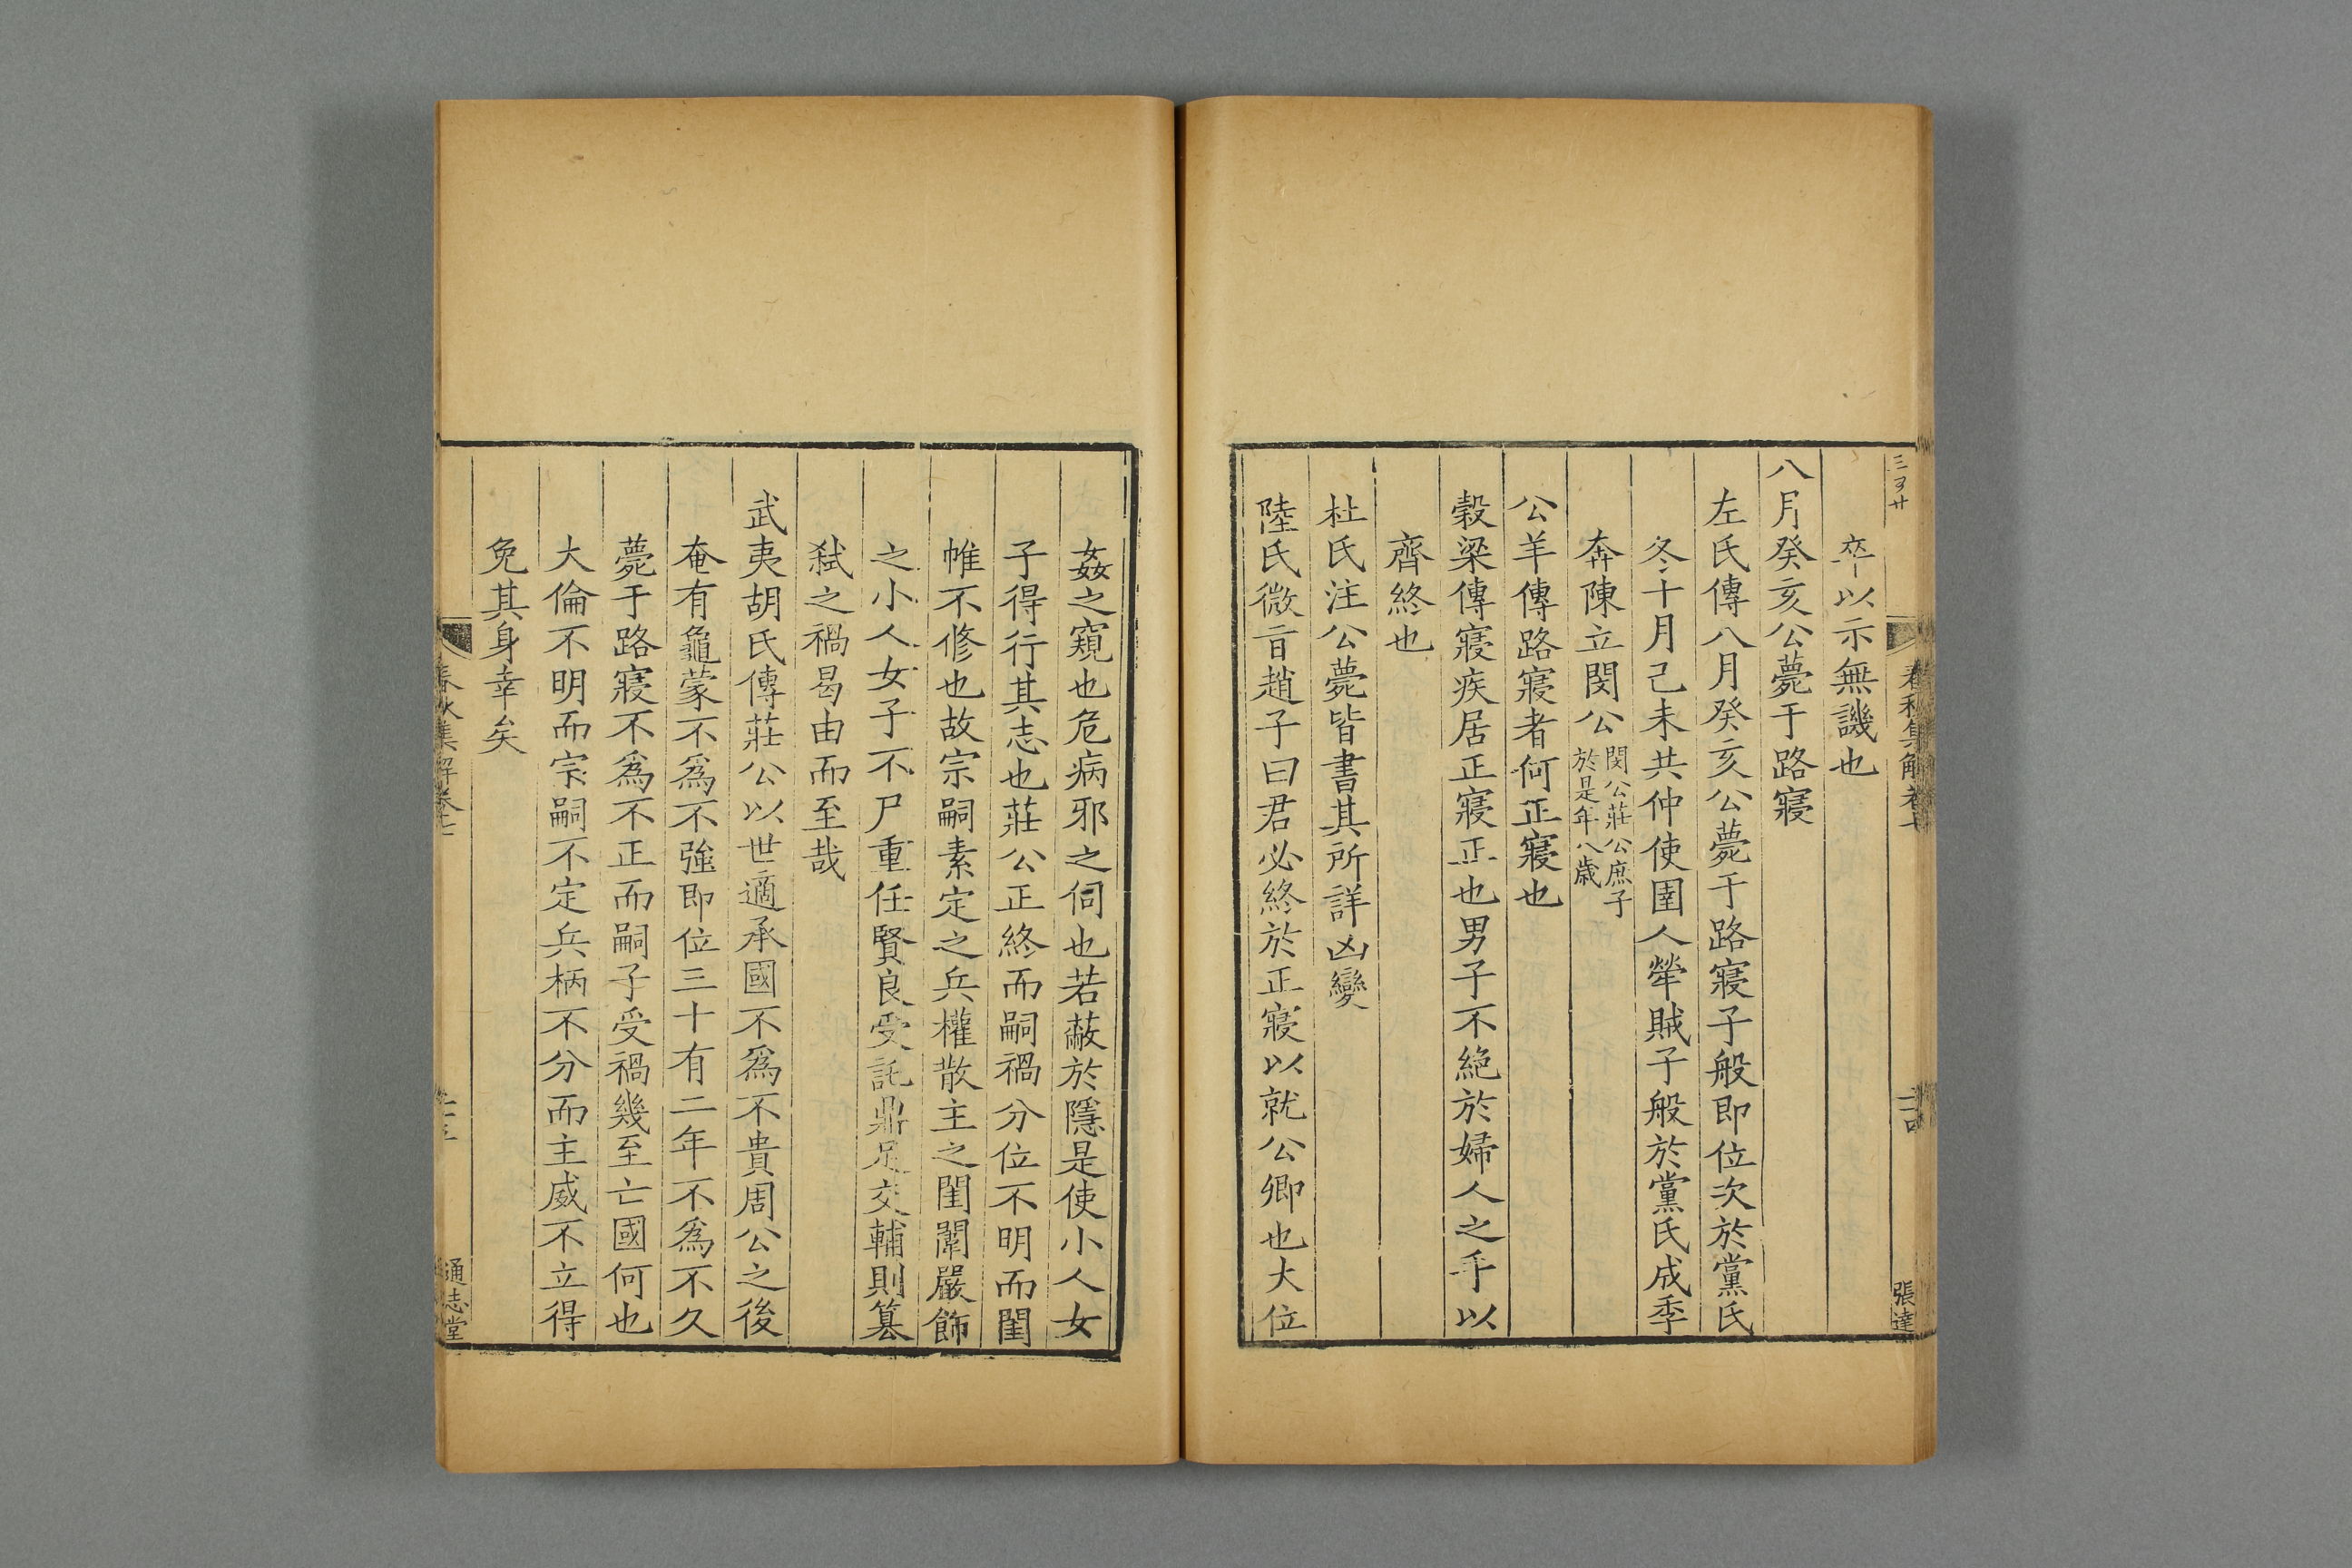 卒以示無譏也
八月癸亥公薨于路寢
左氏傳八月癸亥公薨于路寢子般即位次於黨氏
冬十月己未共仲使圉人犖賊子般於黨氏成季
奔陳立閔公閔公莊公庶子
於是年八歲
公羊傳路寢者何正寢也
穀梁傳寢疾居正寢正也男子不絶於婦人之手以
齊終也
杜氏注公薨皆書其所詳凶變
陸氏微旨趙子曰君必終於正寢以就公卿也大位
張達
姦之窺也危病邪之伺也若蔽於隱是使小人女
子得行其志也莊公正終而嗣禍分位不明而閨
帷不修也故宗嗣素定之兵權散主之閨闈嚴飾
之小人女子不尸重任賢良受託鼎足交輔則簒
弒之禍曷由而至哉
武夷胡氏傳莊公以世適承國不爲不貴周公之後
奄有龜蒙不爲不強即位三十有二年不爲不久
薨于路寢不爲不正而嗣子受禍幾至亡國何也
大倫不明而宗嗣不定兵柄不分而主威不立得
免其身幸矣
春秋集解卷七
通志堂